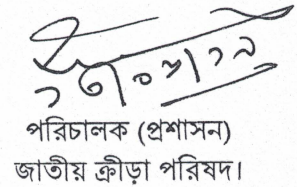 পরিচালক (প্রশাসন)
জাতীয় ক্রীড়া পরিষদ।